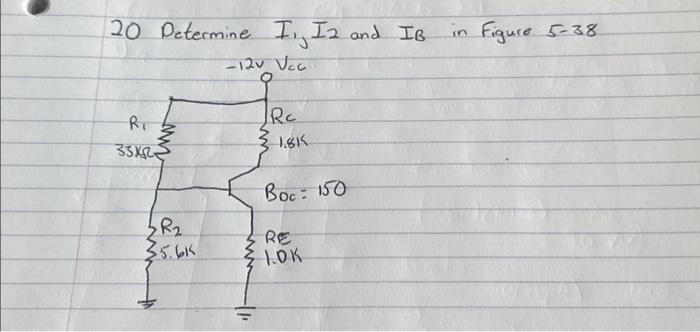 20 Determine I1, I2 and IB in Figure 5-38
-12v Vcc
R1
33KΩ
Rc
1.8K
BDC = 150
R2
5.6K
RE
1.0K